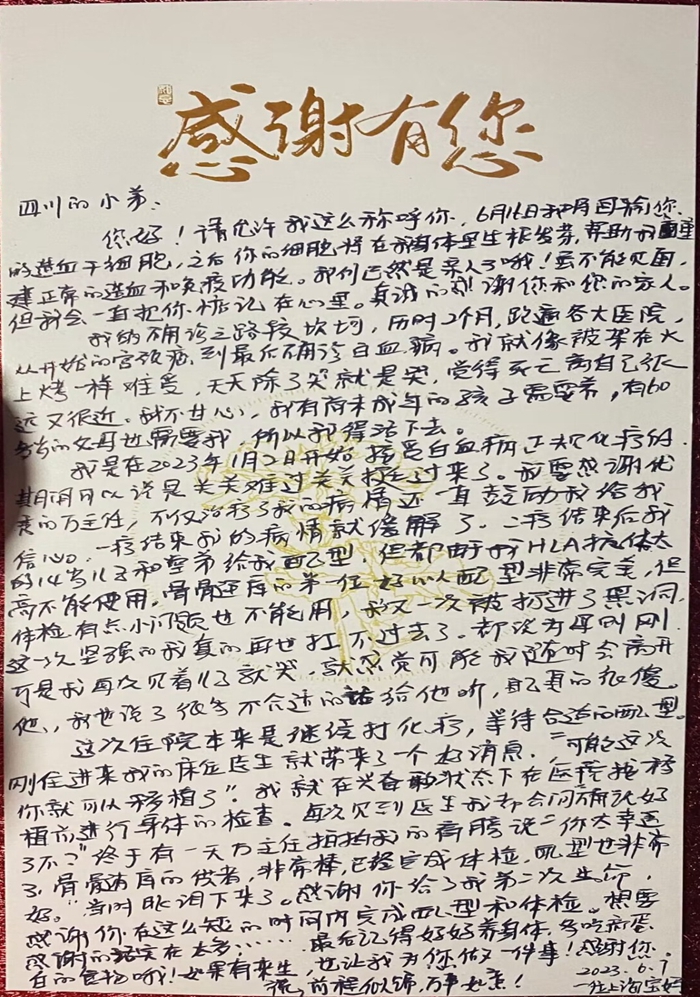 感谢有您
四川的小弟：
您好！请允许我这么称呼你，6月16日和月回输您
的造血干细胞，之后你的细胞将在我身体里生根发芽，帮助我重
建正常的造血和免疫功能。我们已然是亲人了哦！虽不能见面，
但我会一直把你惦记在心里。真诚的感谢你和您的家人。
我的确诊之路较坎坷，历时2个月，跑遍各大医院，
从开始的宫颈病到最后确诊白血病。我就像被架在火
上烤一样难受，天天除了哭就是哭，觉得死亡离自己很
远又很近。我不甘心，我有尚未成年的孩子需要养，有60
多岁的父母也需要我，所以我得活下去。
我是在2023年1月2日开始接受白血病正规化疗的，
期间可以说是关关难过关关过来了。我要感谢优
秀的方主任，不仅治疗了我的病情还一直鼓励我给我
信心。一疗结束我的病情就缓解了，二疗结束后我
的14岁儿子和堂弟给我配型，但都由于我HLA抗体太
高不能使用。骨髓库的第一位好心人配型非常完美，但
体检有点小问题也不能用，我又一次被扔进了黑洞，
这一次坚强的我真的再也扛不过去了。都说为母则刚，
可是我每次见着儿子就哭，就感觉可能我随时会离开
他，我也说了很多不合适的话给他听，自己真的很傻。
这次住院本来是继续打化疗，等待合适的配型。
刚住进来我的床位医生就带来了一个好消息，“可能这次
你就可以移植了”。我就在兴奋状态下在医院找移
植前进行身体的检查。每次见到医生我都会问确说好
了不？”终于有一天方主任拍拍我的肩膀说“你太幸运
了，骨髓库的供者，非常棒，已经完成体检，配型也非常
好。”当时眼泪下来了。感谢你给了我第二次生命，
感谢你在这么短的时间内完成配型和体检。想要
感谢的话实在太多……最后记得好好养身体，多吃高蛋
白的食物哦！如果有来生，也让我为你做一件事！感谢您。
祝，前程似锦，万事如意！
2023.6.9
一位上海宝妈